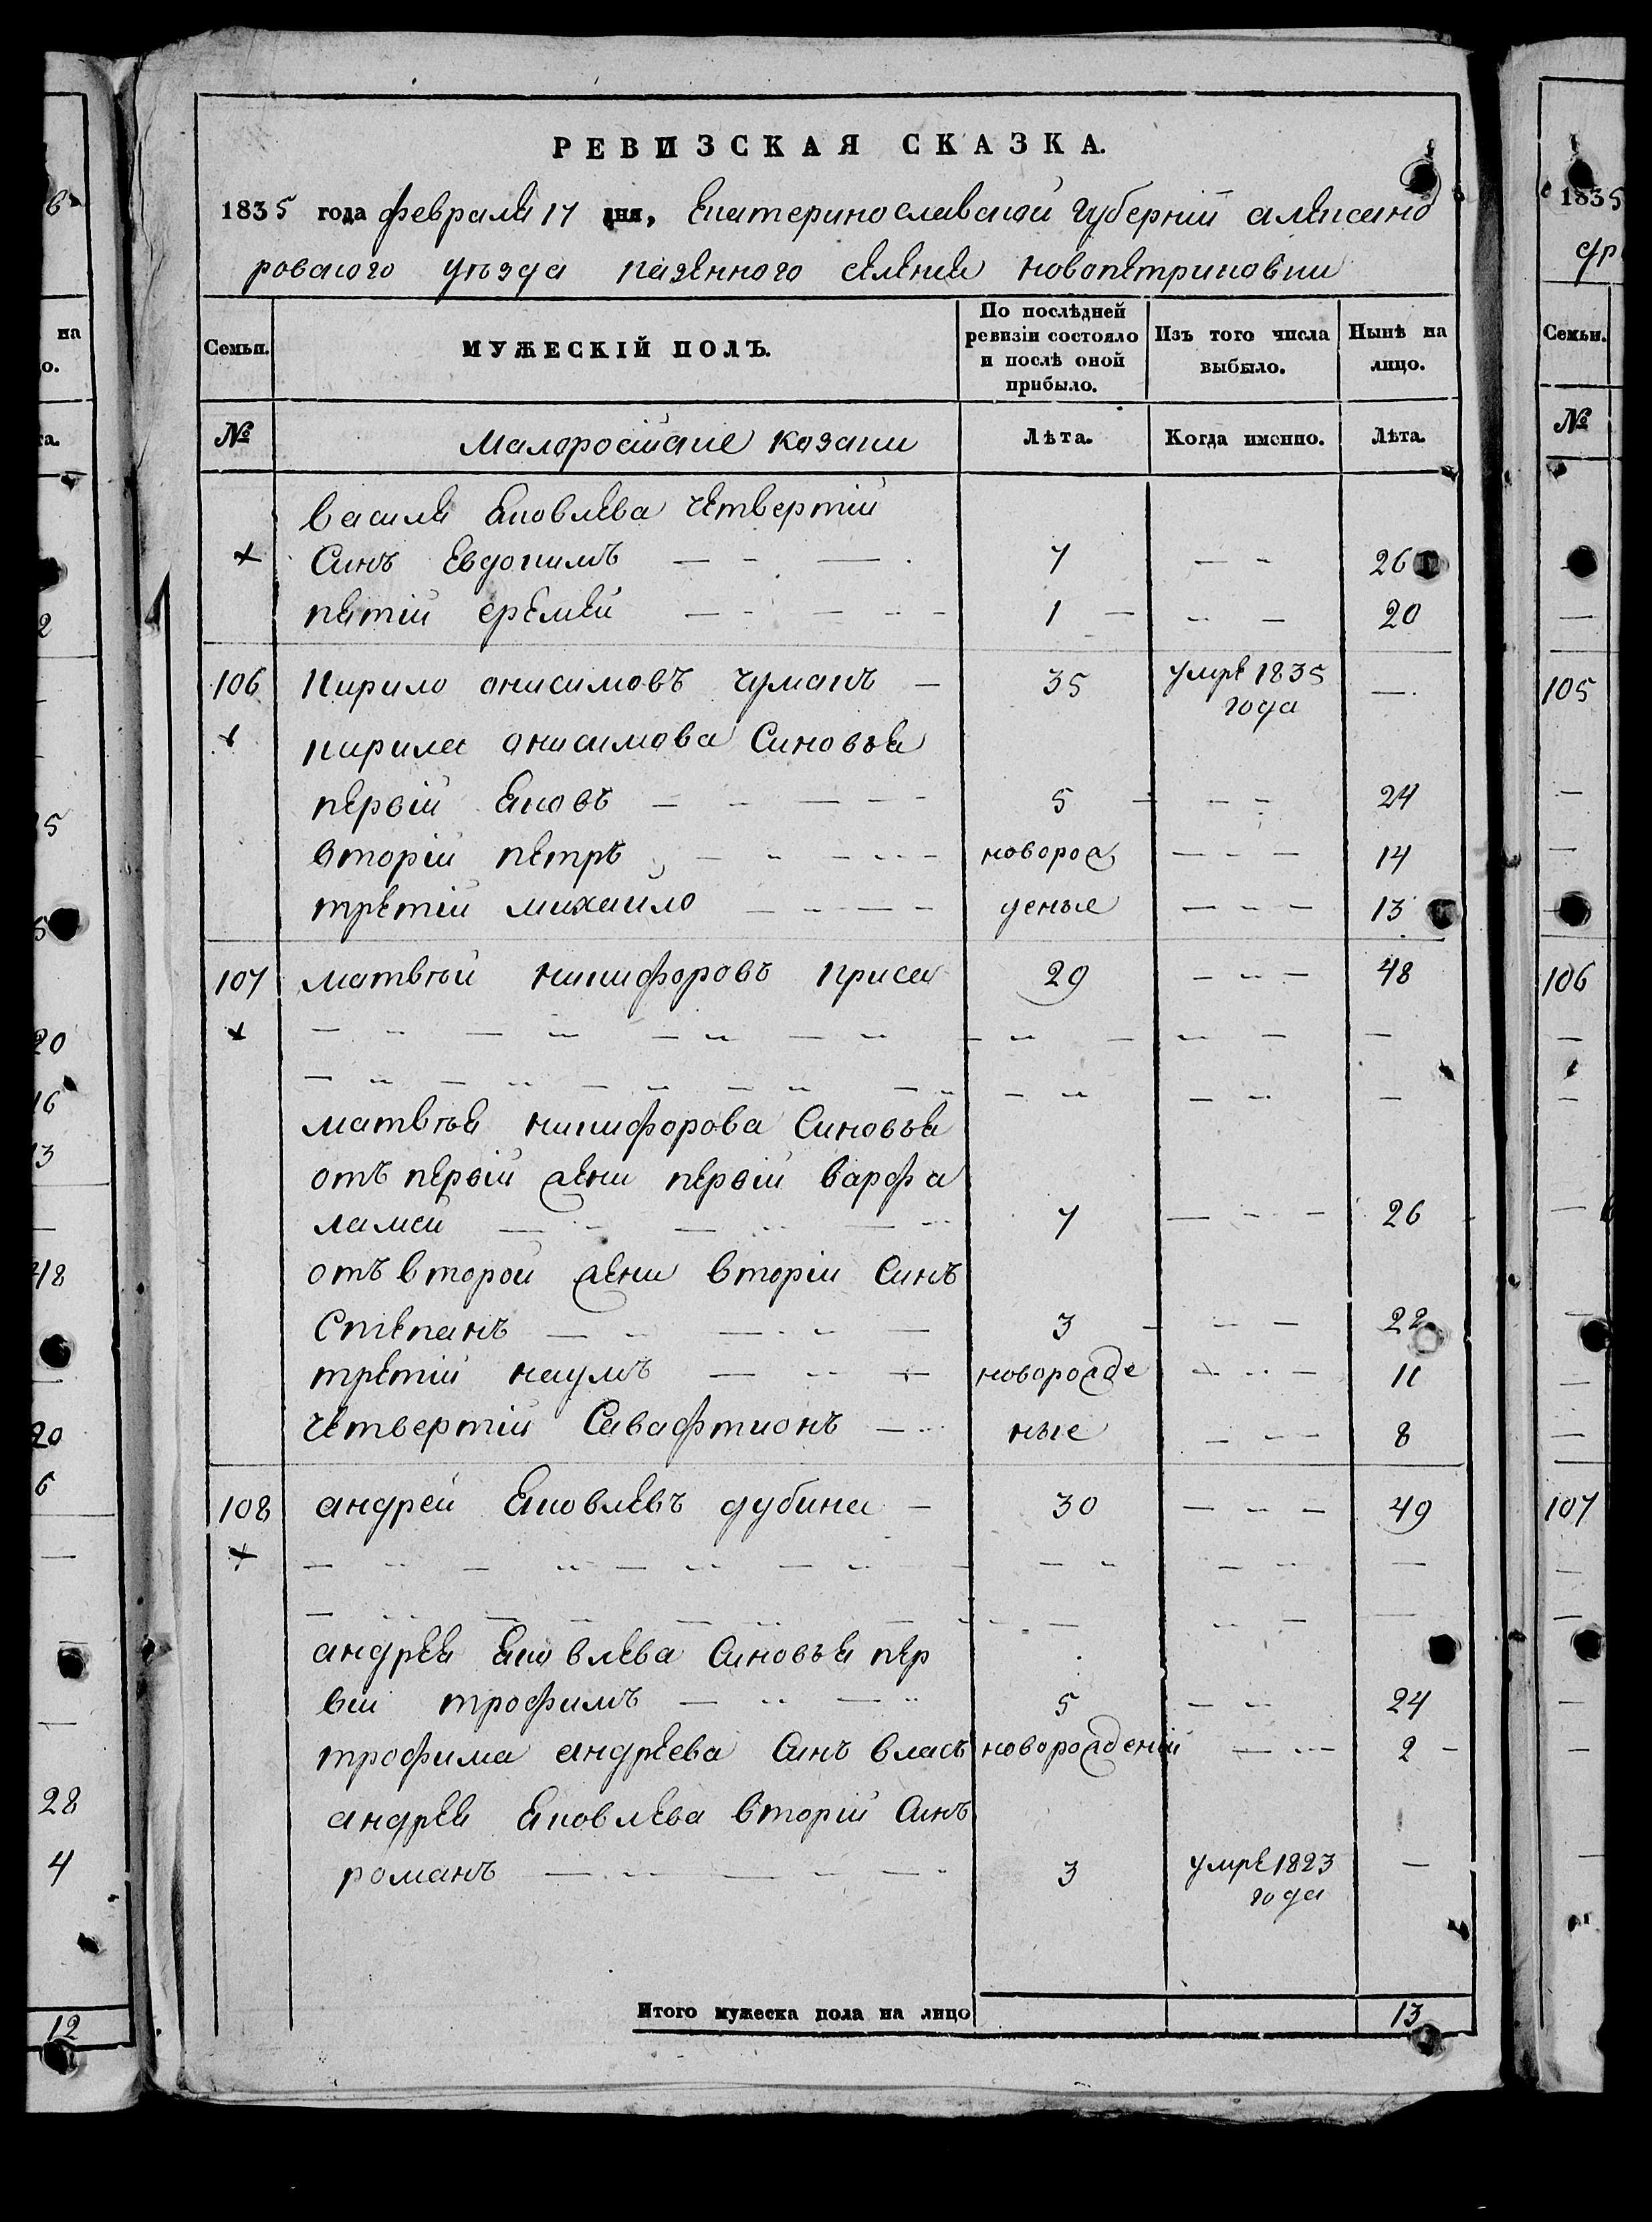 РЕВИЗСКАЯ СКАЗКА.
1835 года февраля 17 дня, Екатеринославской губерніи александ
ровского уѣзда казенного селения новопетриковки
Семьи. МУЖЕСКІЙ ПОЛЪ. По послѣдней ревизіи состояло и послѣ оной прибыло. Изъ того числа выбыло. Нынѣ на лицо.
№ Малоросійские козаки Лѣта. Когда именно. Лѣта.
Василя Яковлева четвертій
+ Синъ Евдокимъ — - — 7 — - 26
пятій еремей — - — - - 1 — - — 20
106 Кирило онисимовъ чумакъ — 35 умре 1835 года —
+ кирила онисимова Синовья
первій Яковъ — - — - - 5 — - - 24
вторій петръ — - — - - — новорож — - — 14
третій михайло — - — - деные — - — 13
107 матвѣй никифоровъ приса 29 — - — 48
+
матвѣя никифорова Синовья
отъ первій жени первій варфа
ламей — - — - — - 7 — - - — 26
отъ второй жени вторій Синъ
Степанъ — - — - — 3 — - — 22
третій наумъ — - — новорожде — - — 11
четвертій Севафтионъ — - ные — - — 8
108 андрей Яковлевъ дубина — 30 — - — 49
+
андрея Яковлева Синовья пер
вій трофимъ — - — - 5 — - 24
трофима андреева Синъ власъ новорожденій — - — 2 -
андрея Яковлева вторій Синъ
романъ — - — - — - 3 умре 1823 года —
Итого мужеска пола на лицо 13
на
о.
та.
2
5
20
16
13
48
20
6
28
4
12
1835
Семьи.
№
105
106
107